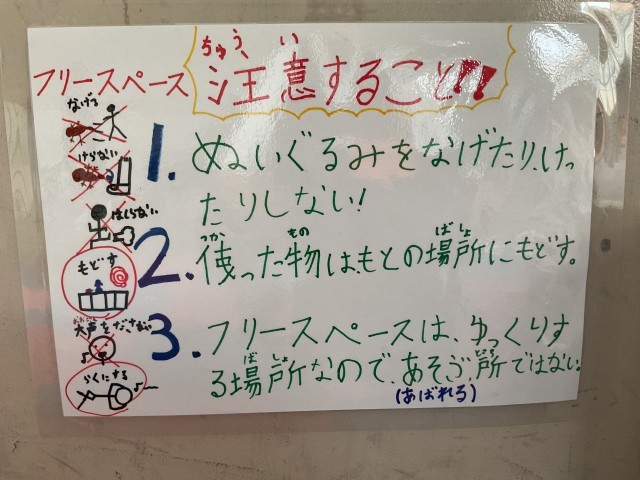 フリースペース 注意すること!!
ちゅう、い
なげる
けらない
はしらない
もどす
大声をださない
らくにする
1. ぬいぐるみをなげたり、けっ
たりしない!
2. 使った物は、もとの場所にもどす。
つか もの ばしょ
3. フリースペースは、ゆっくりす
る場所なので、あそぶ所ではない。
ばしょ
(あばれる)